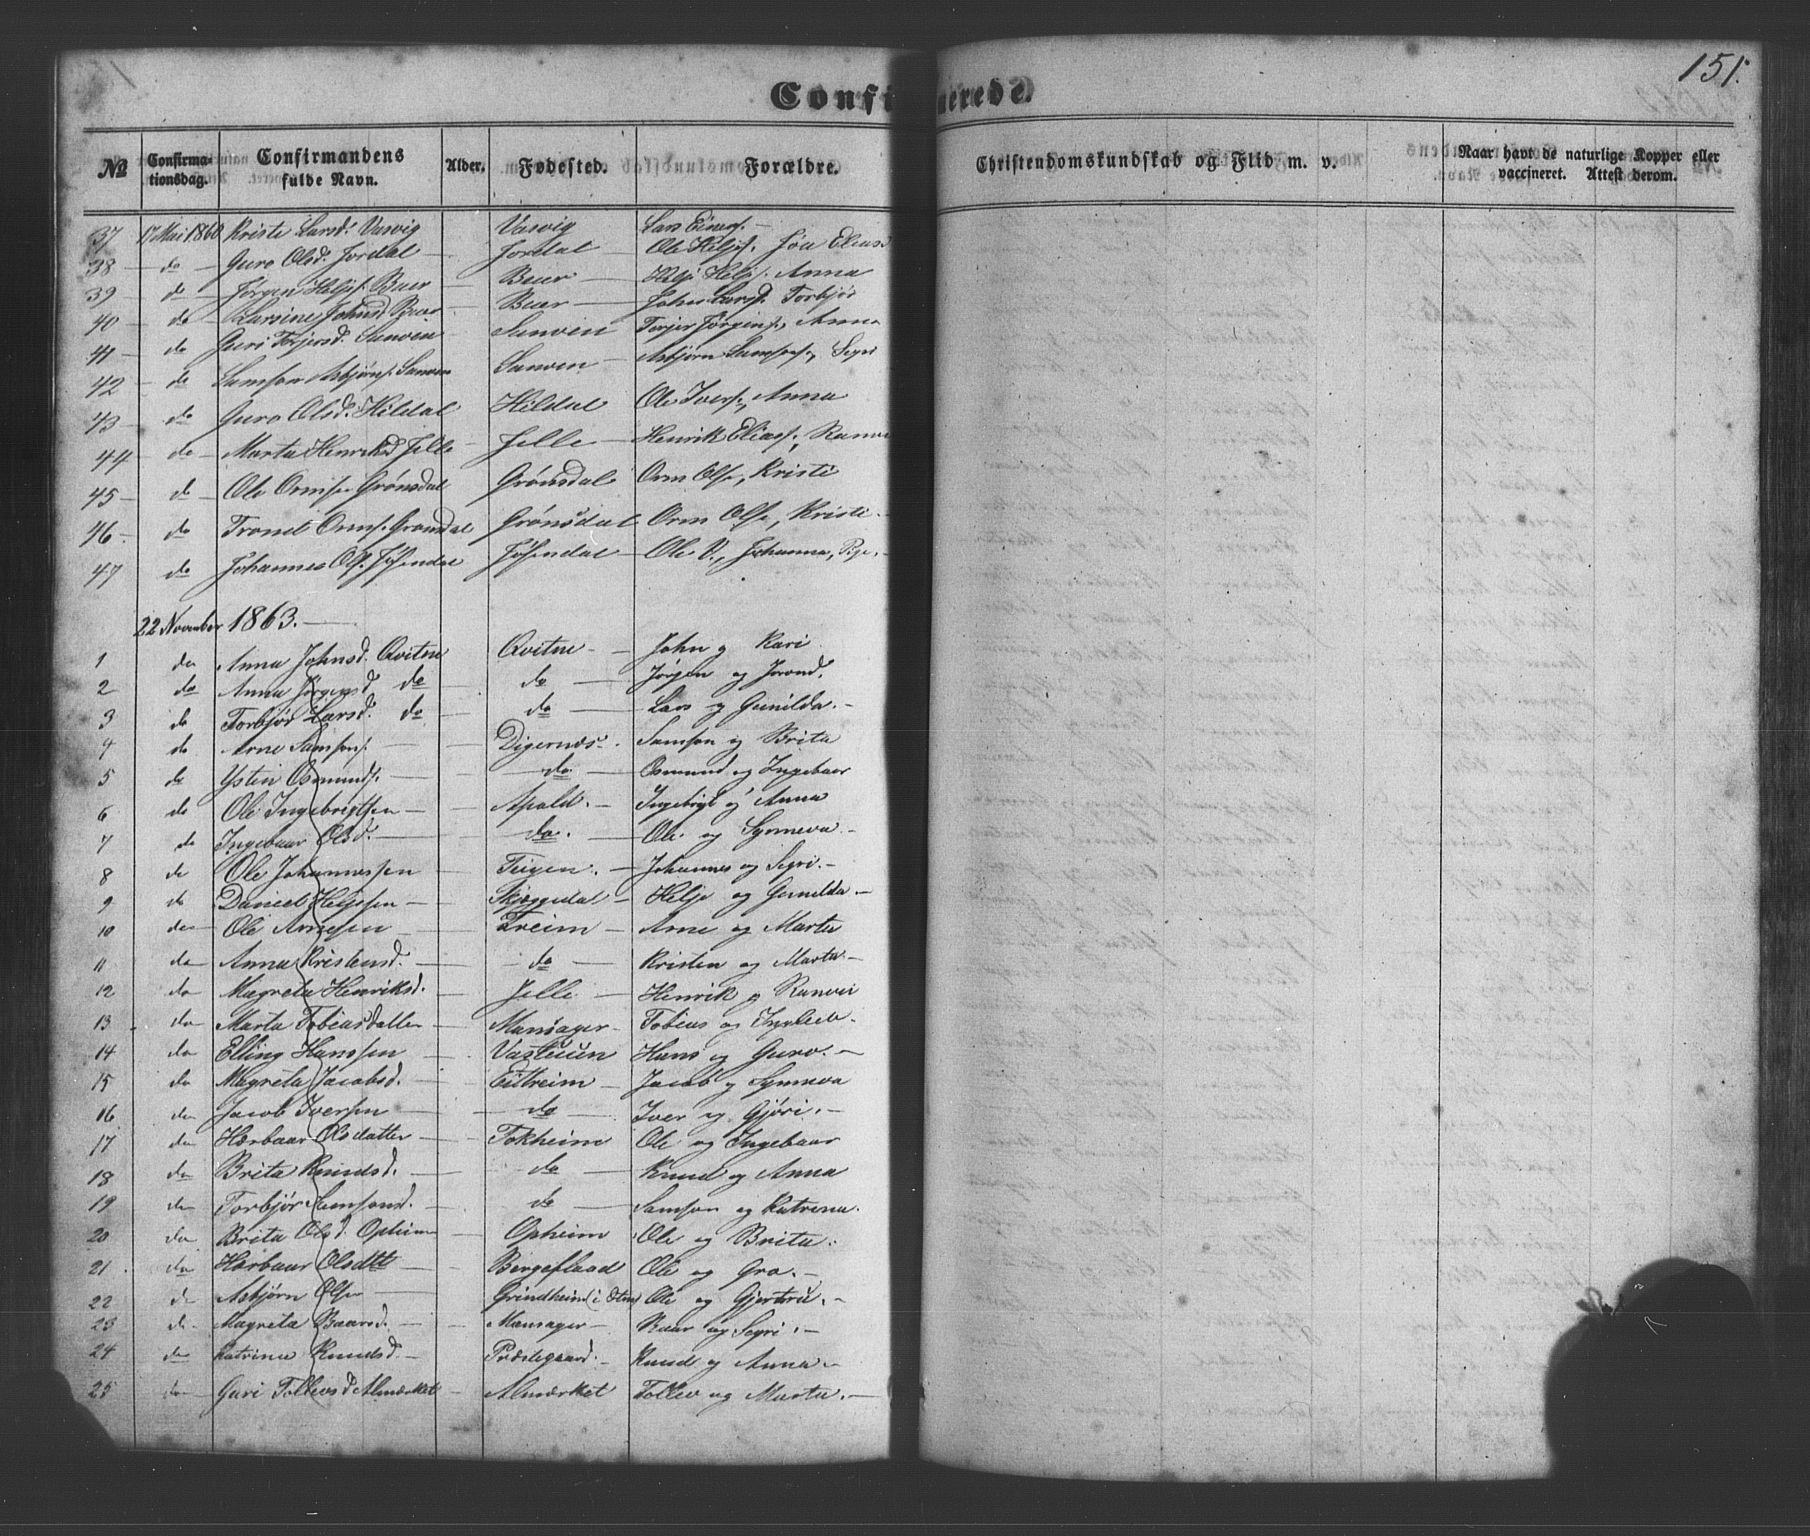 151.
Confi nerede.
No Confirma-tionsdag. Confirmandens fulde Navn. Alder. Fødested. Forældre. Christendomskundskab og Flid m. v. Naar havt de naturlige Kopper eller vaccineret. Attest derom.
37 17 Mai 1860 Kristi Larsd. Vasvig Vasvig Lars Einers.
38 do Guro Olsd. Jordal Jordal Ole Heljes. Jöa Eliasd
39 do Jörgen Heljes. Buer Buer Helje Heljes. Anna
40 do Larsine Johnsd. Buer Buer John Larss. Torbjör
41 do Guri Torjersd. Sanven Sanven Torjer Jörgens., Anna
42 do Samson Asbjörns. Sanven Sanven Asbjörn Samsons., Segri
43 do Guro Olsd. Hildal Hildal Ole Ivers., Anna
44 do Marta Henriksd Jelle Jelle Henrik Eliass., Ranvei
45 do Ole Ormsen Grönsdal Grönsdal Orm Olsen, Kristi
46 do Trond Orms. Gronsdal Grönsdal Orm Olsen, Kristi
47 do Johannes Ols. Jösendal Jösendal Ole V., Johanna,
22 November 1863.
1 do Anna Johnsd. Qvitne Qvitne John og Kari
2 do Anna Jörgensd do do Jörgen og Jorond.
3 do Torbjör Larsd. do do Lars og Gunilda.
4 do Arne Samsons. Digernæs. Samson og Brita
5 do Ysten Osmunds. do Osmund og Ingebaar
6 do Ole Ingebrigtsen Apald. Ingebrigt og Anna
7 do Ingebaar Olsd. do. Ole og Synneva
8 do Ole Johannessen Teigen. Johannes og Segri.
9 do Daniel Heljesen Skjeggedal Helje og Gunilda
10 do Ole Arnesen Freim Arne og Marta
11 do Anna Kristensd. do Kristen og Marta
12 do Magreta Henriksd. Jelle Henrik og Ranvei
13 do Marta Tobiasdatter Mansager Tobias og
14 do Elling Hanssen Vastuun Hans og Guro.
15 do Magreta Jacobsd. Eitreim Jacob og Synneva
16 do Jacob Iversen do Iver og Gjöri.
17 do Herbaar Olsdatter Tokheim Ole og Ingebaar
18 do Brita Knudsd. do Knud og Anna
19 do Torbjör Samsonsd. do Samson og Katrina.
20 do Brita Olsd. Opheim Opheim Ole og Brita.
21 do Herbaar Olsdtt Bergeflaad Ole og Gro.
22 do Asbjörn Olsen Grindheim (i Etne) Ole og Gjertru.
23 do Magreta Baarsd. Mansager Baar og Segri.
24 do Katrina Knudsd. Præstegaard. Knud og Anna
25 do Guri Tollevsd Almærket Almærket Tollev og Marta.